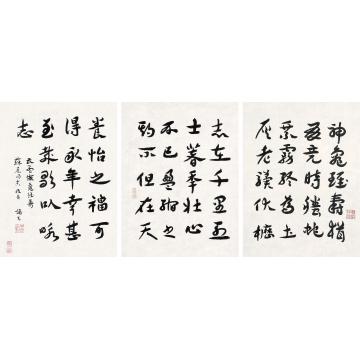 神龜雖壽猶
有竟時騰蛇
乘霧終為土
灰老驥伏櫪
志在千里烈
士暮年壯心
不已盈縮之
期不但在天
養怡之福可
得永年幸甚
至哉歌以詠
志